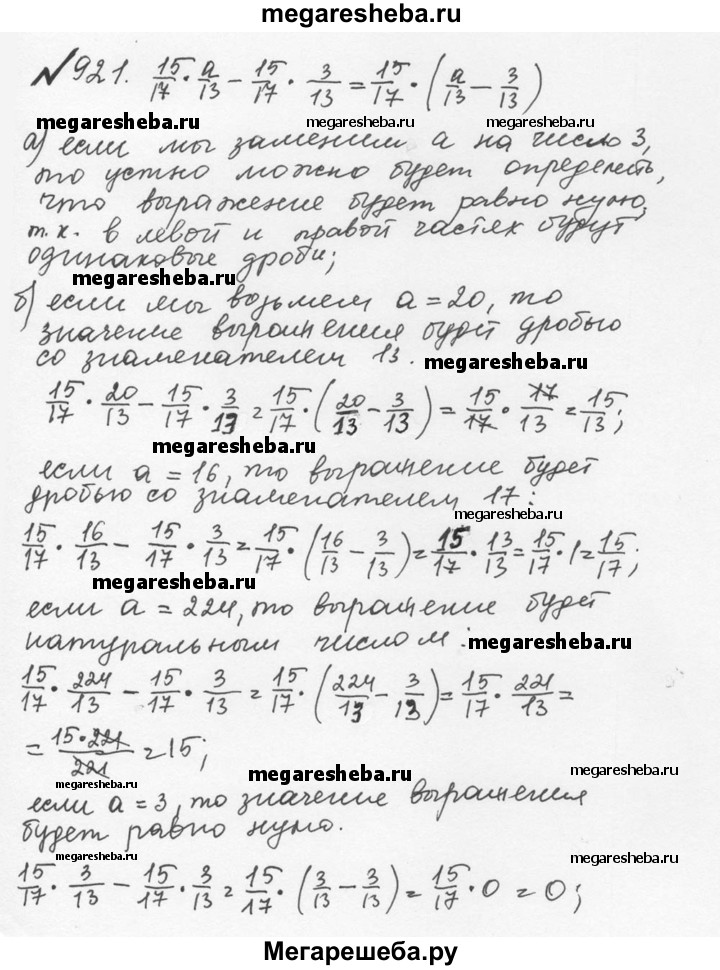 megaresheba.ru
№921. 15/17 · a/13 − 15/17 · 3/13 = 15/17 · (a/13 − 3/13)
megaresheba.ru megaresheba.ru
а) если мы заменим а на число 3,
то устно можно будет определить,
что выражение будет равно нулю,
т.к. в левой и правой частях будут
одинаковые дроби;
megaresheba.ru
б) если мы возьмем a = 20, то
значение выражения будет дробью
со знаменателем 13.
megaresheba.ru
15/17 · 20/13 − 15/17 · 3/13 = 15/17 · (20/13 − 3/13) = 15/17 · 17/13 = 15/13;
megaresheba.ru
если a = 16, то выражение будет
дробью со знаменателем 17:
megaresheba.ru
15/17 · 16/13 − 15/17 · 3/13 = 15/17 · (16/13 − 3/13) = 15/17 · 13/13 = 15/17 · 1 = 15/17;
megaresheba.ru
если a = 224, то выражение будет
натуральным числом:
megaresheba.ru
15/17 · 224/13 − 15/17 · 3/13 = 15/17 · (224/13 − 3/13) = 15/17 · 221/13 =
= 15·221/221 = 15;
megaresheba.ru
megaresheba.ru
megaresheba.ru
если a = 3, то значение выражения
будет равно нулю.
megaresheba.ru
megaresheba.ru
15/17 · 3/13 − 15/17 · 3/13 = 15/17 · (3/13 − 3/13) = 15/17 · 0 = 0;
Мегарешеба.ру